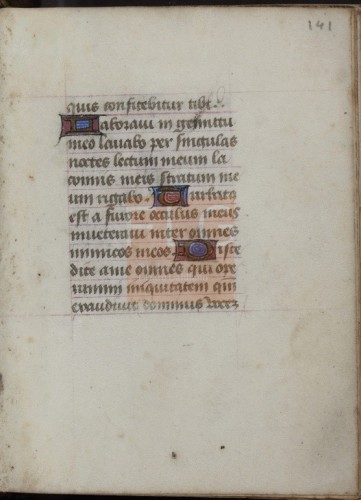 141
quis confitebitur tibi.
Laboravi in gemitu
meo lavabo per singulas
noctes lectum meum la
crimis meis stratum me
um rigabo. Turbatus
est a furore occulus meus
inveteravi inter omnes
inimicos meos. Disce
dite a me omnes qui ope
ramini iniquitatem qm
exaudivit dominus vocez